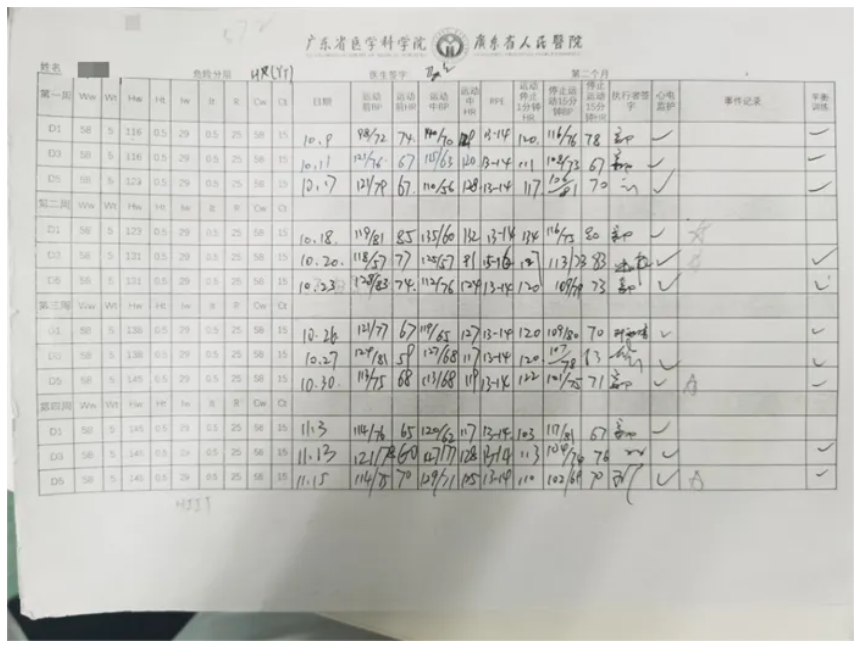 广东省医学科学院 廣東省人民醫院
姓名 危险分层 医生签字 第二个月
第一周 Ww Wt Hw Ht Iw It R Cw Ct 日期 运动前BP 运动前HR 运动中BP 运动中HR RPE 运动停止1分钟HR 停止运动15分钟BP 停止运动15分钟HR 执行者签字 心电监护 事件记录 平衡训练
D1 58 5 116 0.5 29 0.5 25 58 15 10.9 98/72 74 13-14 120 116/76 78 ✓ ✓
D3 58 5 116 0.5 29 0.5 25 58 15 10.11 121/76 67 120 13-14 111 108/73 67 ✓ ✓
D5 58 5 123 0.5 29 0.5 25 58 15 10.17 121/79 67 110/56 128 13-14 117 70 ✓ ✓
第二周 Ww Wt Hw Ht Iw It R Cw Ct
D1 58 5 123 0.5 29 0.5 25 58 15 10.18 119/81 85 135/60 132 13-14 134 116/75 80 ✓
D3 58 5 131 0.5 29 0.5 25 58 15 10.20 118/57 77 125/57 113/73 83 ✓ ✓
D5 58 5 131 0.5 29 0.5 25 58 15 10.23 128/83 74 112/76 124 13-14 120 109/79 73 ✓ ✓
第三周 Ww Wt Hw Ht Iw It R Cw Ct
D1 58 5 138 0.5 29 0.5 25 58 15 10.26 121/77 67 119/65 127 13-14 120 109/80 70 ✓ ✓
D3 58 5 138 0.5 29 0.5 25 58 15 10.27 124/81 59 127/68 117 13-14 120 107/78 ✓ ✓
D5 58 5 145 0.5 29 0.5 25 58 15 10.30 113/75 68 113/68 119 13-14 122 101/75 71 ✓ ✓
第四周 Ww Wt Hw Ht Iw It R Cw Ct
D1 58 5 145 0.5 29 0.5 25 58 15 11.3 114/76 65 120/62 117 13-14 103 117/81 67 ✓
D3 58 5 145 0.5 29 0.5 25 58 15 11.13 121/78 60 127/77 128 13-14 113 76 ✓ ✓
D5 58 5 145 0.5 29 0.5 25 58 15 11.15 114/75 70 129/71 125 13-14 110 102/69 70 ✓ ✓